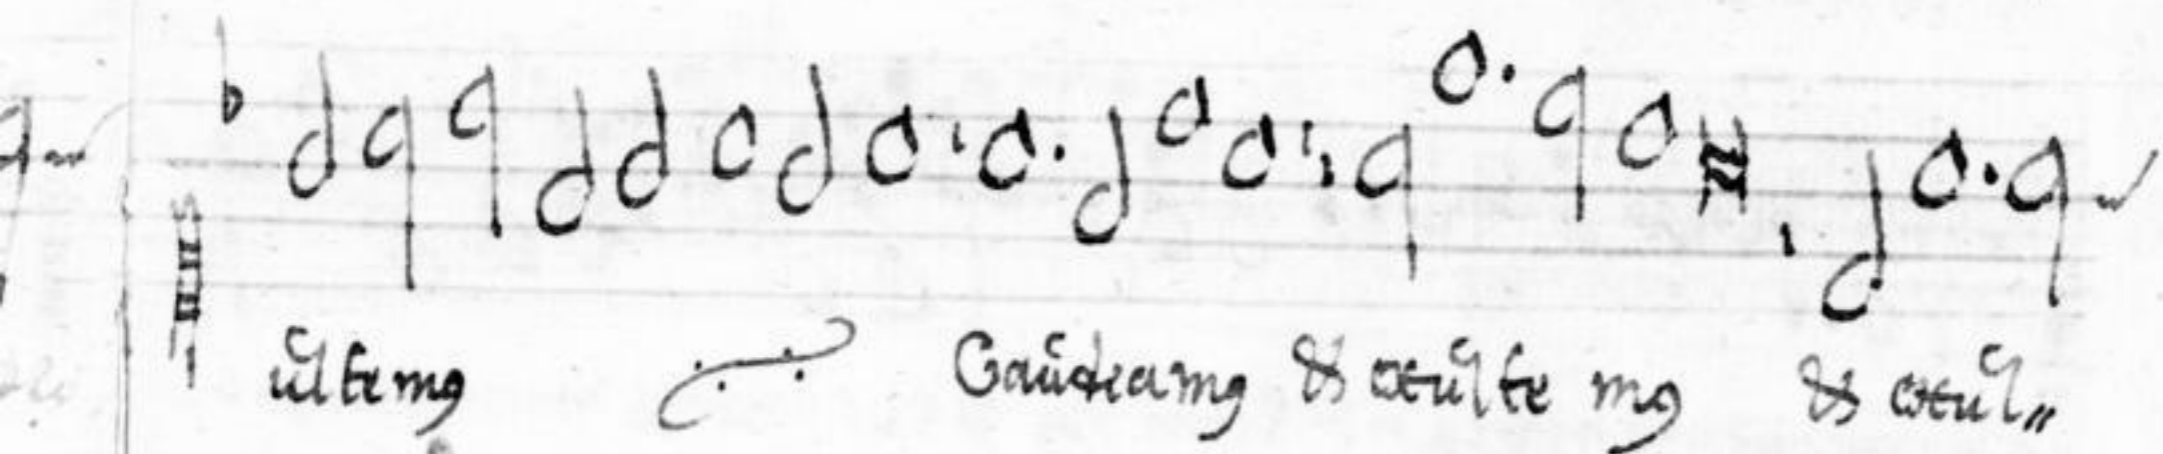 ultemꝰ Gaudeamꝰ & exulte mꝰ & exul〃